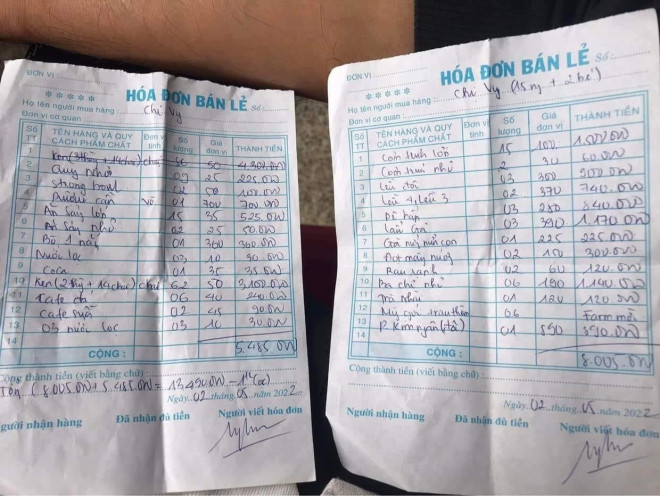 ĐƠN VỊ :
HÓA ĐƠN BÁN LẺ Số :
Họ tên người mua hàng : Chị Vy
Đơn vị cơ quan
Số TT TÊN HÀNG VÀ QUY CÁCH PHẨM CHẤT Đơn vị tính Số lượng Giá đơn vị THÀNH TIỀN
1
2 50
3 Quy nhỏ 09 25 225.000
4 strong bowl 02 50 100.000
5 01 700 700.000
6 Ăn sáng lớn 15 35 525.000
7 Ăn sáng nhỏ 02 25 50.000
8 Bò 1 nắng 01 360 360.000
9 Nước lọc 03 10 30.000
coca 01 35 35.000
10 Ken (2 thg + 14 chai) chai 62 50 3.100.000
11 Cafe đá 06 40 240.000
12 cafe sữa 02 45 90.000
13 03 nước lọc 03 10 30.000
14
CỘNG : 5.485.000
Cộng thành tiền (viết bằng chữ)
(8.005.000 + 5.485.000 = 13.490.000
Ngày 02 tháng 05 năm 2022
Người nhận hàng Đã nhận đủ tiền Người viết hóa đơn
ĐƠN VỊ :
HÓA ĐƠN BÁN LẺ Số :
Họ tên người mua hàng : Chị Vy (15 ng + 2 bé)
Đơn vị cơ quan
Số TT TÊN HÀNG VÀ QUY CÁCH PHẨM CHẤT Đơn vị tính Số lượng Giá đơn vị THÀNH TIỀN
1 Cơm trưa lớn 15 100
2 Cơm trưa nhỏ 2 30 60.000
3 Lều đôi 03 300 900.000
4 Lều 4, lều 3 02 370 740.000
5 03 280 840.000
6 Lẩu Gà 03 390 1.170.000
7 01 225 225.000
8 02 150 300.000
9 Rau sạch 02 60 120.000
10 Ba chỉ nhỏ 06 190 1.140.000
11 01 120 120.000
12 06
13 01 390 390.000
14
CỘNG : 8.005.000
Cộng thành tiền (viết bằng chữ)
Ngày 02 tháng 05 năm 2022
Người nhận hàng Đã nhận đủ tiền Người viết hóa đơn